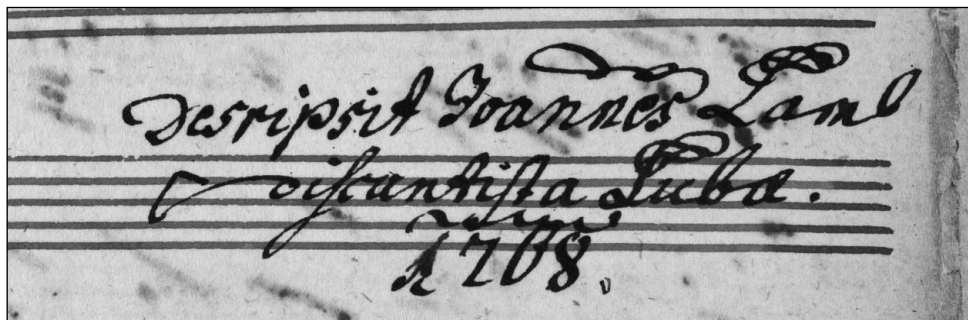 Descripsit Joannes Lamb
discantista Lubæ.
1768.